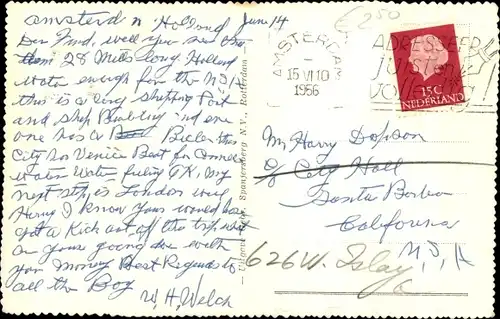 Amsterdam Holland June 14
Dear Frnd, well you see
them 28 Miles long. Holland
Water enough for the U.S.A
this is a very shipping Port
and ship Building and eve
one has a Bicle this
City is Venice Best for
Water Water
next stop is London well
Harry I know your would
got a Kick out off the trip
on your going do with
you Money Best Regards to
all the Boy
W. H. Welch
Spanjersberg N.V., Rotterdam
€ 250
AMSTERDAM
15 VI 10
1956
ADRESSEER
JUIST EN
VOLLEDIG
15C
NEDERLAND
Mr Harry Dopson
c/o City Hall
Santa Barba
California
U, S, A
626 W. Islay,